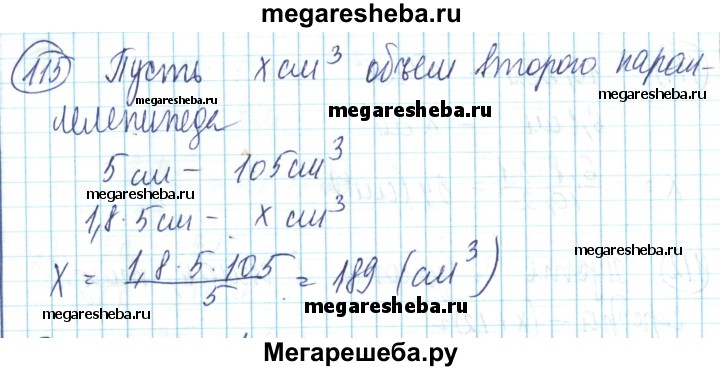 megaresheba.ru
115 Пусть х см³ объем второго парал-
megaresheba.ru
megaresheba.ru
megaresheba.ru
лелепипеда
5 см - 105 см³
megaresheba.ru
1,8·5 см - х см³
megaresheba.ru
х = 1,8·5·105 / 5 = 189 (см³)
megaresheba.ru
megaresheba.ru
Мегарешеба.ру